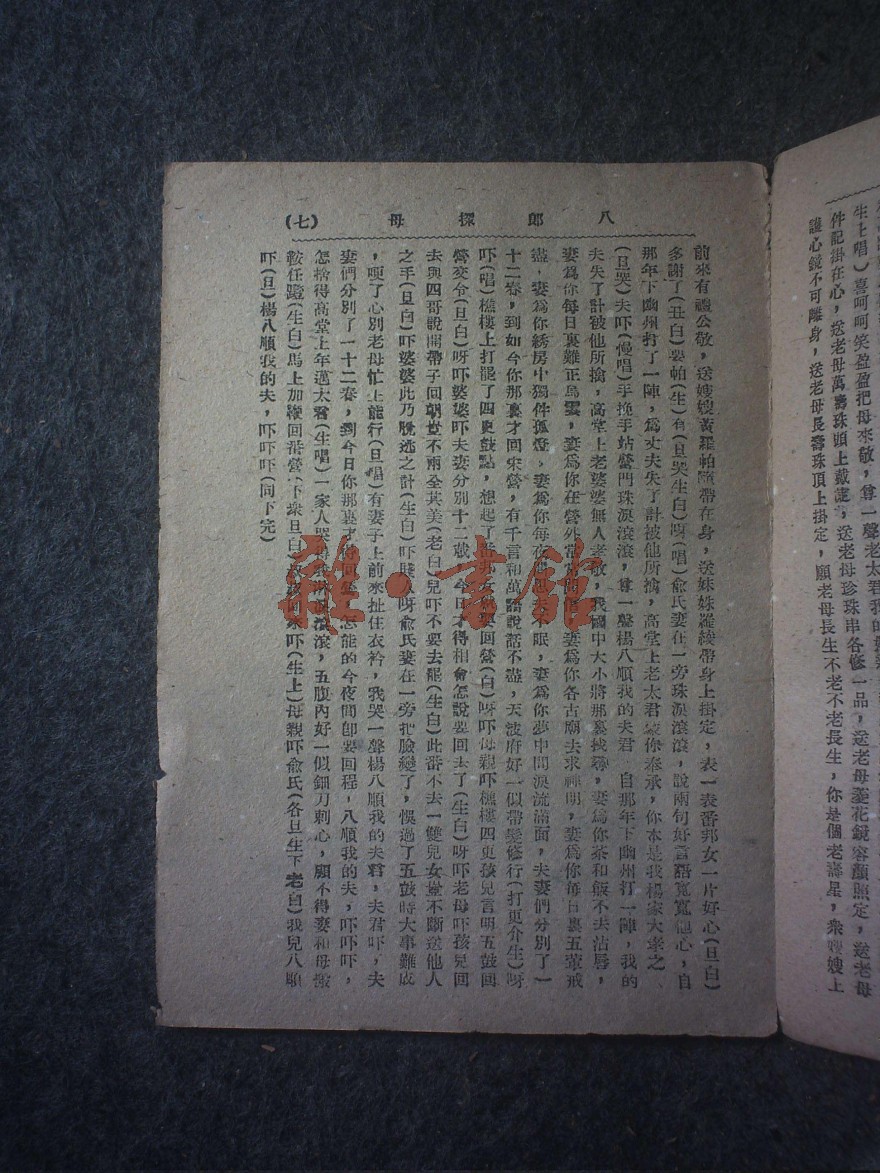 八郎探母 (七)
前來有禮公敬，送嫂嫂黃羅帕隨帶在身，送妹妹羅綾帶身上掛定，表一表番邦女一片好心(旦白)
多謝了(丑白)要帕(生)有(旦哭生白)呀(唱)俞氏妻在一旁珠淚滾滾，說兩句好言語寬寬他心，自
那年下幽州打了一陣，為丈夫失了計被他所擒，高堂上老太君蒙你奉承，你本是我楊家大孝之
(旦哭)夫吓(慢唱)手挽手站營門珠淚滾滾，尊一聲楊八順我的夫君 自那年下幽州打一陣，我的
夫失了計被他所擒，高堂上老婆婆無人孝敬，我國中大小將那裏找尋，妻為你茶和飯不去沾唇，
妻為你每日裏雞正烏雲，妻為你在營外常常問信，妻為你各古廟去求神明，妻為你每日裏五葷戒
盡，妻為你綉房中獨伴孤燈，妻為你每夜不眠，妻為你夢中間淚流滿面，夫妻們分別了一
十二春，到如今你那裏才回宋營，有千言和萬語說話不盡，天波府好一似帶髮修行(打更介生)呀
吓(唱)樵樓上打罷了四更鼓點，想起了番邦女要回營(白)呀吓母親吓樵樓四更孩兒言明五鼓回
營交令(旦白)呀吓婆婆吓夫妻分別十二載，今日才得相會怎說要回去了(生白)呀吓老母吓孩兒回
去與四哥說開帶子回朝豈不兩全其美(老白)兒吓不要去罷(生白)此番不去一雙兒女豈不斷送他人
之手(旦白)吓婆婆此乃脫逃之計(生白)吓賤呀俞氏妻在一旁把臉變了，悞過了五鼓時大事難成
，哽了心別老母忙上能行(旦唱)有妻子上前來扯住衣衿，我哭一聲楊八順我的夫君，夫君吓，夫
妻們分別了一十二春，到今日你那裏才得回，怎能的今夜間卽要回程，八順我的夫，吓吓吓，
怎捨得高堂上年邁太君(生唱)一家人哭得淚滾滾，五腹內好一似鋼刀刺心，顧不得妻和母搬
鞍任蹬(生白)馬上加鞭回番營(下衆旦白)吓(生上)母親吓俞氏(各旦生下老白)我兒八順
吓(旦)楊八順我的夫，吓吓吓(同下完)
生上唱)喜呵呵笑盈盈把母來敬，尊一聲老太君我的
件記掛在心，送老母萬壽珠頭上戴定，送老母珍珠串各修一品，送老母菱花鏡容顏照定，送老母
護心鏡不可離身，送老母長壽珠頂上掛定，願老母長生不老不老長生，你是個老壽星，衆嫂嫂上
雜·書館